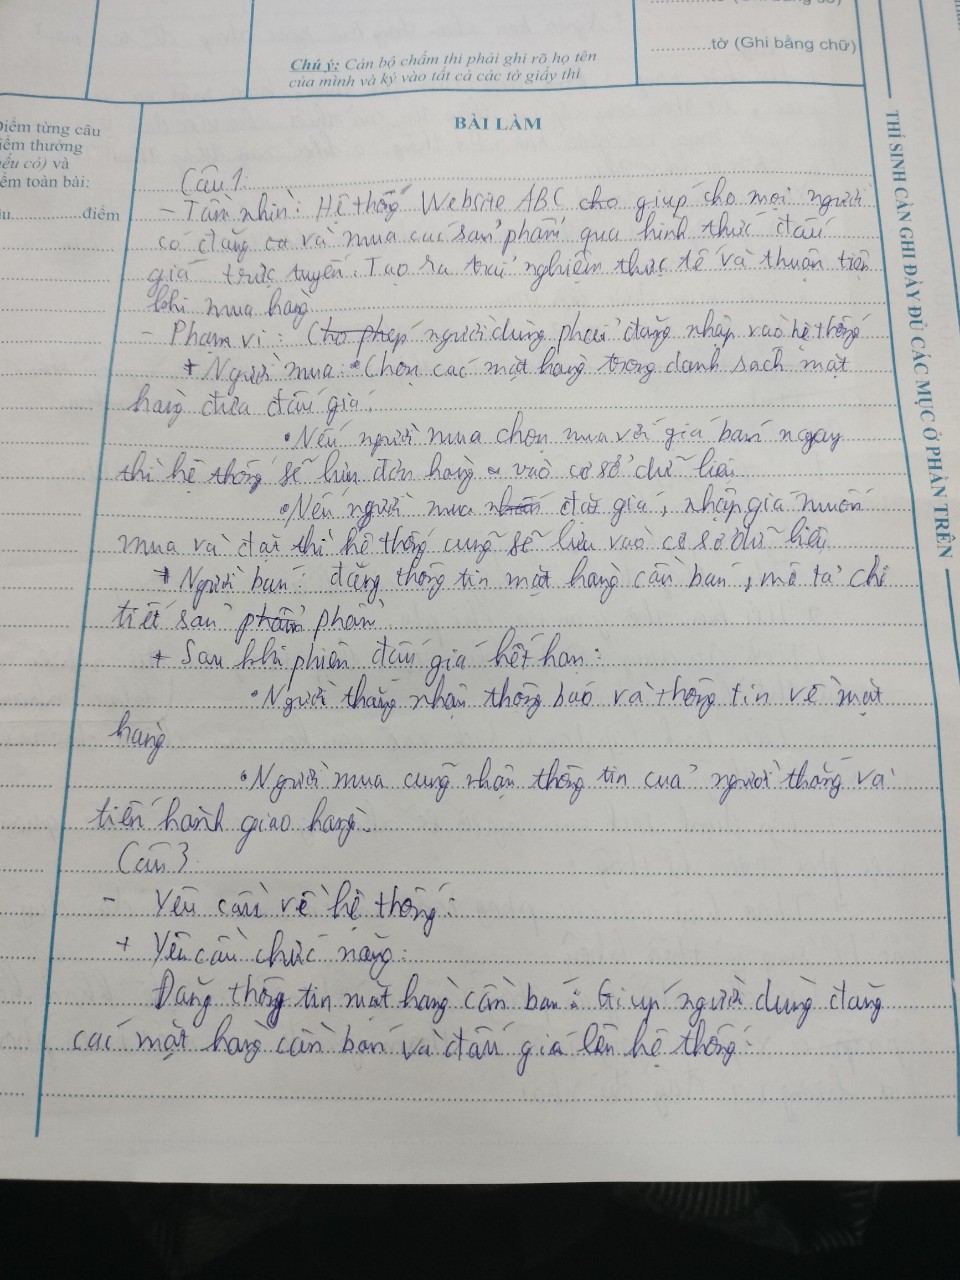 tờ (Ghi bằng chữ)
Chú ý: Cán bộ chấm thi phải ghi rõ họ tên
của mình và ký vào tất cả các tờ giấy thi
THÍ SINH CẦN GHI ĐẦY ĐỦ CÁC MỤC Ở PHẦN TRÊN
Điểm từng câu
điểm thưởng
(nếu có) và
điểm toàn bài:
điểm
BÀI LÀM
Câu 1:
- Tầm nhìn: Hệ thống Website ABC cho giúp cho mọi người
có đăng và mua các sản phẩm qua hình thức đấu
giá trực tuyến. Tạo ra trải nghiệm thực tế và thuận tiện
khi mua hàng
- Phạm vi: Cho phép người dùng phải đăng nhập vào hệ thống
+ Người mua: • Chọn các mặt hàng trong danh sách mặt
hàng đưa đấu giá.
• Nếu người mua chọn mua với giá bán ngay
thì hệ thống sẽ lưu đơn hàng vào cơ sở dữ liệu
• Nếu người mua đặt giá, nhập giá muốn
mua và đặt thì hệ thống cũng sẽ lưu vào cơ sở dữ liệu
+ Người bán: đăng thông tin mặt hàng cần bán, mô tả chi
tiết sản phẩm phẩm
+ Sau khi phiên đấu giá hết hạn:
• Người thắng nhận thông báo và thông tin về mặt
hàng
• Người mua cũng nhận thông tin của người thắng và
tiến hành giao hàng.
Câu 3
- Yêu cầu về hệ thống:
+ Yêu cầu chức năng:
Đăng thông tin mặt hàng cần bán: Giúp người dùng đăng
các mặt hàng cần bán và đấu giá lên hệ thống.